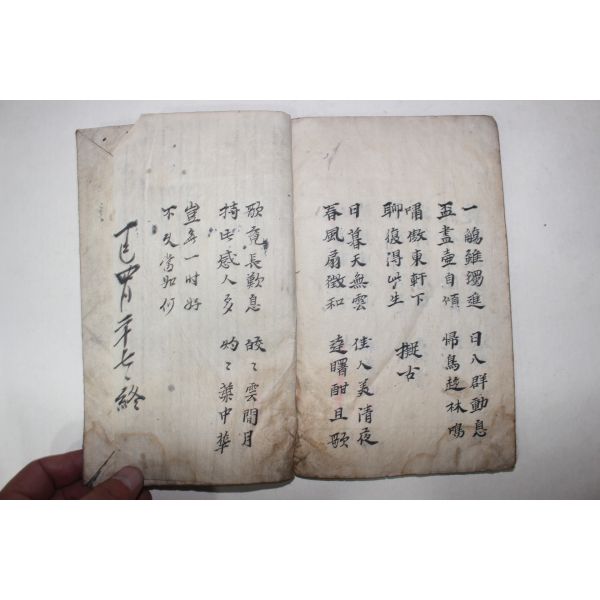 一觴雖獨進
盃盡壺自傾
日入群動息
歸鳥趍林鳴
嘯傲東軒下
聊復得此生
擬古
日暮天無雲
春風扇微和
佳人美清夜
達曙酣且歌
歌竟長歎息
持此感人多
皎〻雲間月
灼〻葉中華
豈無一時好
不久當如何
丁巳四月二十七日終